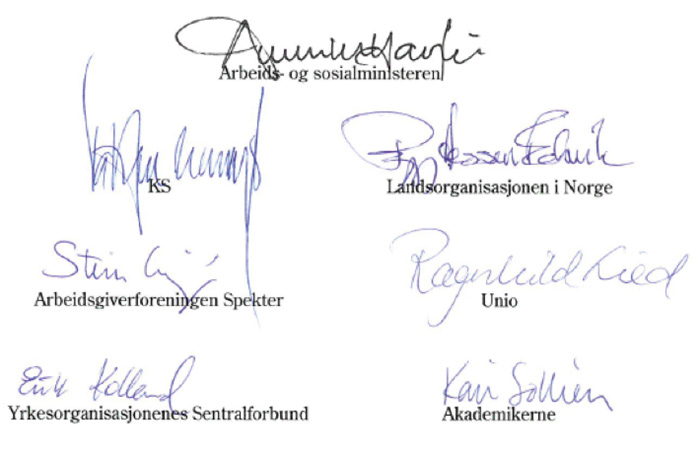 Arbeids- og sosialministeren
KS
Landsorganisasjonen i Norge
Stein
Arbeidsgiverforeningen Spekter
Ragnhild Lied
Unio
Erik Kollerud
Yrkesorganisasjonenes Sentralforbund
Kari Sollien
Akademikerne